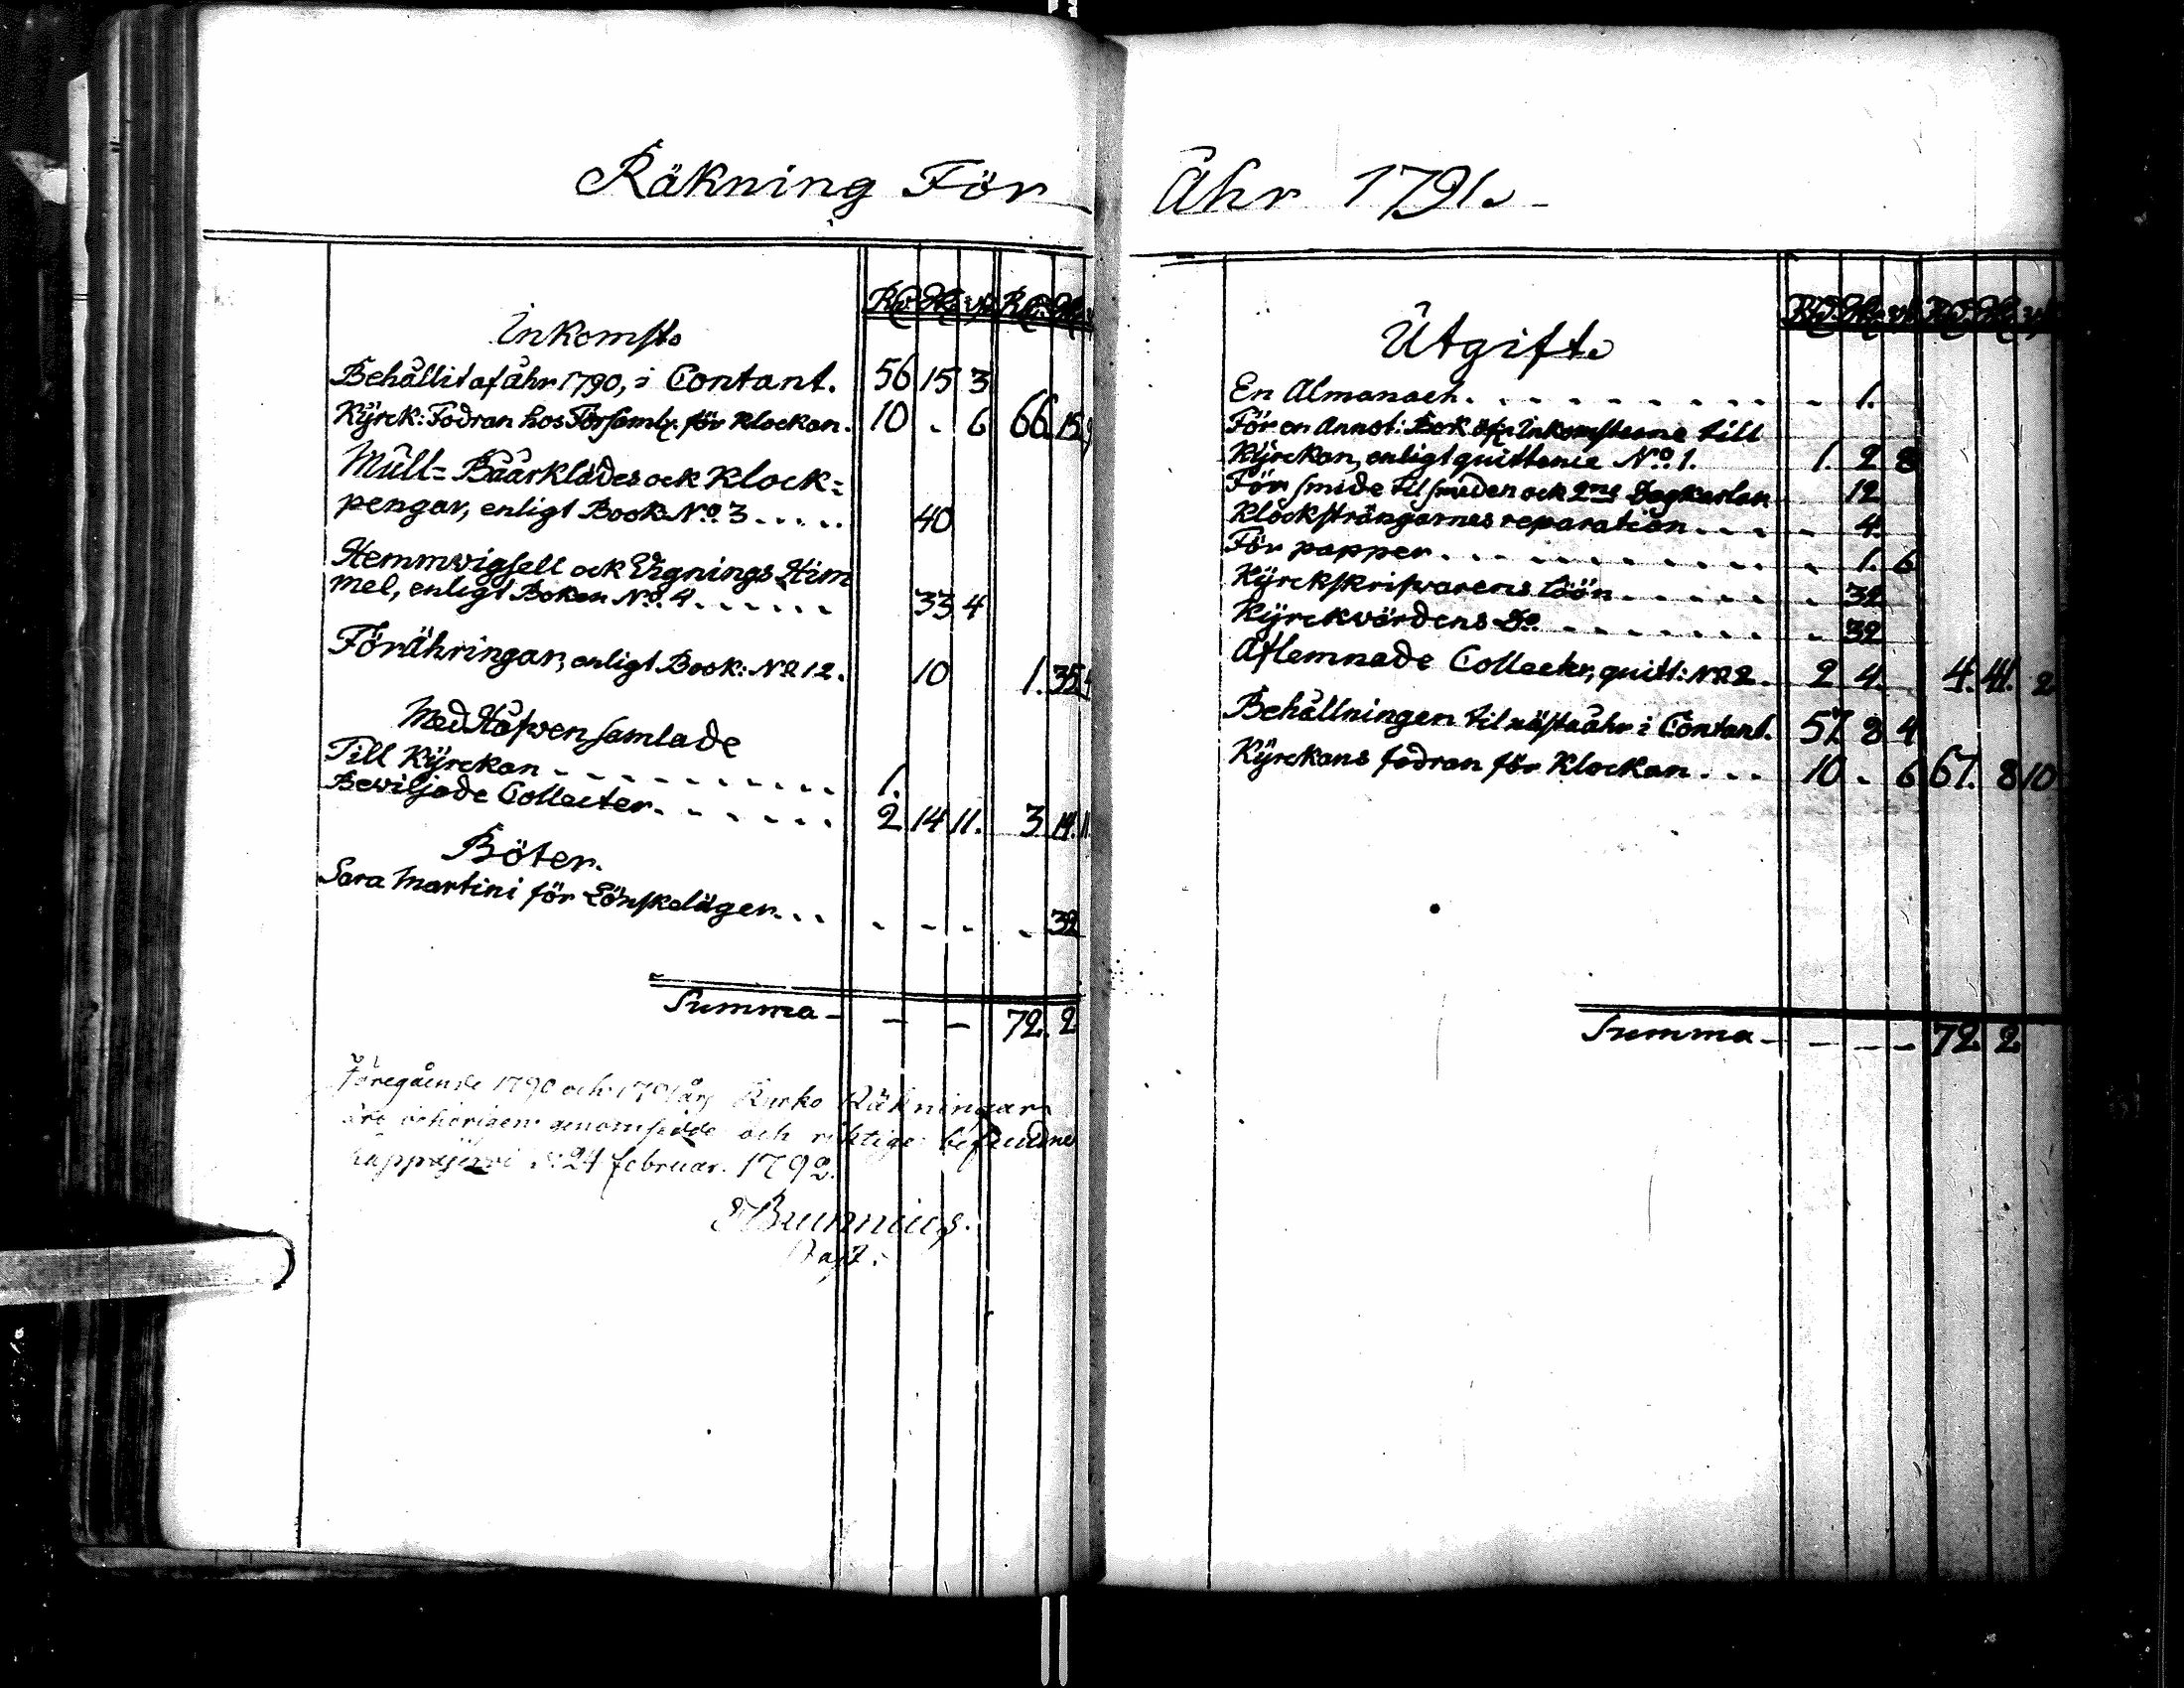 Räkning För
Inkomst.
Behållit af åhr 1790, i Contant. 56 15 3
Kÿrck: Fodran hos Församlg. för Klockan. 10 - 6 66. 15. 9
Mull= Båårklädes ock Klock=
pengar, enligt Book Nº 3 ..... 40
Hemmwigsell ock Vignings Him
mel, enligt Boken Nº. 4 ...... 33 4
Förähringar, enligt Book: Nº 12. 10 1. 35 4
Med Håfven samlade
Till Kÿrckan ......... 1.
Beviljade Collecter ...... 2 14 11. 3 14. 11.
Böter.
Sara Martini för Lönskeläger... - - - - 32
Summa - - - 72. 2
Föregående 1790 och 1791 års Kyrko Räkningar
äro behörigen genomsedde och riktige befundne
Lappajärvi d. 24 februar. 1792.
Brunnius.
Past:
Åhr 1791.
Utgift.
En Almanach ......... 1.
För en Annot: Bok öfr Inkomsterne till
Kÿrckan, enligt quittence Nº. 1. 1. 2 8
För smide til smeden ock 2ne Dagkarlar 12
Klocksträngarnes reparation .... 4.
För papper ......... 1. 6
Kÿrckskrifvarens löön ...... 32
Kÿrckvärdens Dº ........ 32
Aflemnade Collecter, quitt: Nº 2. 2 4. 4. 41. 2
Behållningen til nästa åhr i Contant. 57 8 4
Kÿrckans fodran för Klockan ... 10 - 6 67. 8 10
Summa - - - - 72 2